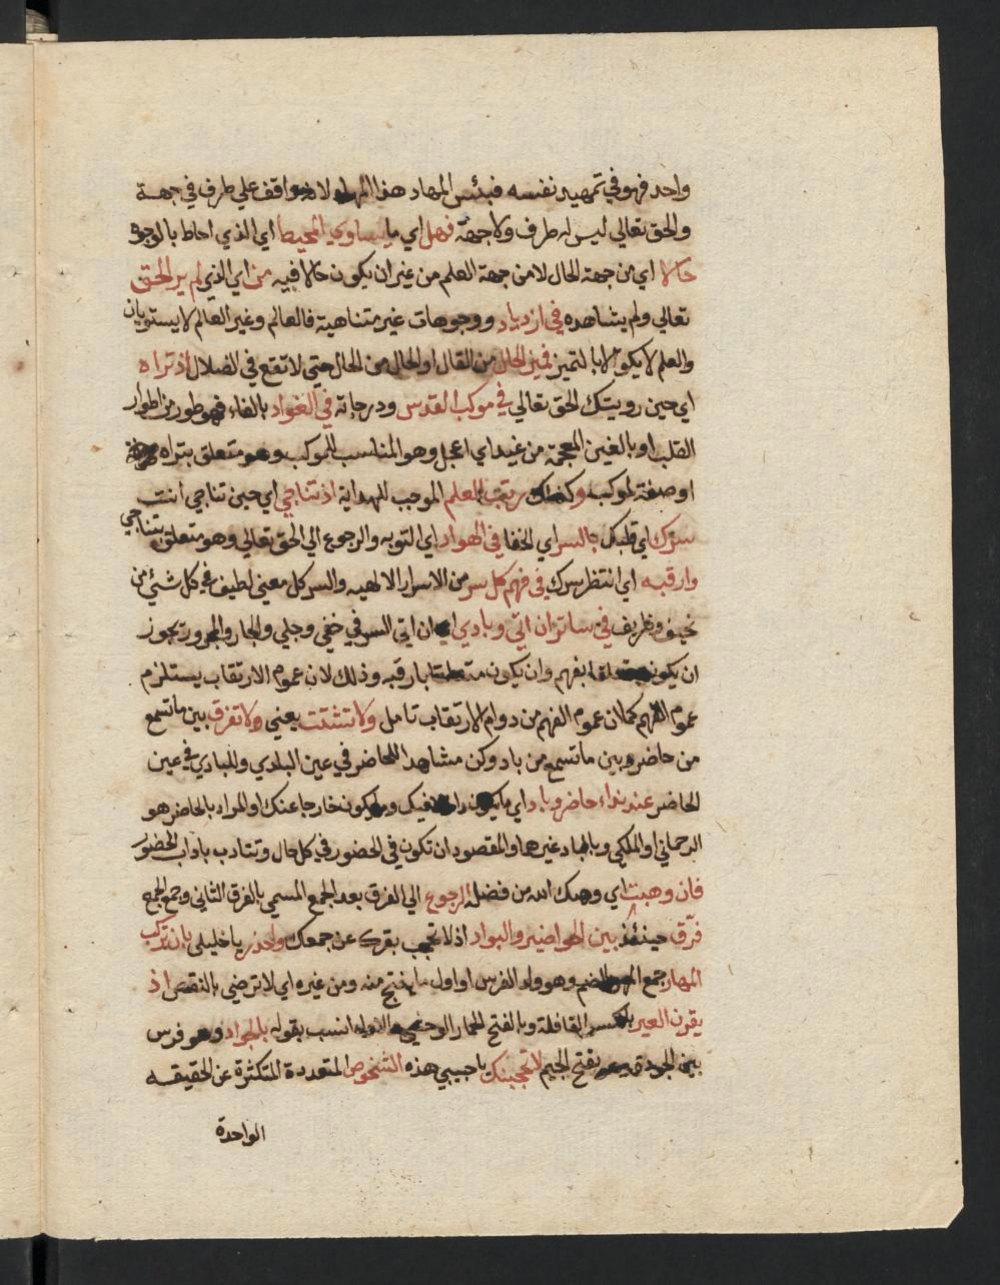 واحد فهو في تمهيد نفسه فبئس المهاد هذا المهاد لانه واقف علي طرف في جهة
والحق تعالي ليس له طرف ولا جهة فهل اي ما يساوي المحيط اي الذي احاط بالوجوه
حالا اي من جهة الحال لا من جهة العلم من غير ان يكون حالا فيه من اي الذي لم ير الحق
تعالي ولم يشاهده في ازدياد ووجوهات غير متناهية فالعالم وغير العالم لا يستويان
والعلم لا يكون الا بالتميز فميز الحال من القال او الحال من المحال حتي لا تقع في الضلال اذ تراه
اي حين رويتك الحق تعالي في موكب القدس ودرجاته في الفواد بالفاء فهو طور من اطوار
القلب او بالغين المعجمة من غيد اي اعجل وهو المناسب للموكب وهو متعلق بتراه
او صفة لموكب وكذلك للعلم الموجب للهداية اذ تناجي اي حين تناجي انت
سرك اي قلبك بالسر اي الخفا في الهواد اي التوبه والرجوع الي الحق تعالي وهو متعلق بتناجي
وارقبه اي انتظر سرك في فهم كل سر من الاسرار الالهيه والسر كل معني لطيف في كل شئ من
وظريف في ساتر ان اتي وبادي ان اتي السر في خفي وجلي والجار والمجرور تجوز
ان يكون متعلقا بفهم وان يكون متعلقا بارقبه وذلك لان عموم الارتقاب يستلزم
عموم الفهم كما ان عموم الفهم من دوام الارتقاب تامل ولا تشتت يعني ولا تفرق بين ما تسمع
من حاضر وبين ما تسمع من باد وكن مشاهدا للحاضر في عين البادي وللبادي في عين
الحاضر عند نداء حاضر وباد اي ما يكون داخلا فيك وما يكون خارجا عنك او المراد بالحاضر هو
الرحماني او الملكي وبالباد غيرهما والمقصود ان تكون في الحضور في كل حال وتتادب باداب الحضور
فان وهبت اي وهبك الله من فضله الرجوع الي الفرق بعد الجمع المسمي بالفرق الثاني وجمع الجمع
فرّق حينئذ بين الحواضير والبواد اذ لا تحجب بفرقك عن جمعك واحذر يا خليلي بان تركب
المهار جمع المهر بالضم وهو ولد الفرس او اول ما ينتج منه ومن غيره اي لا ترضي بالنقص اذ
يقرن العير بالكسر القافلة وبالفتح الحمار الوحشي والاول انسب بقوله بالجواد وهو فرس
بين الجودة بفتح الجيم لا تحجبنك يا حبيبي هذه الشخوص المتعددة المتكثرة عن الحقيقه
الواحدة